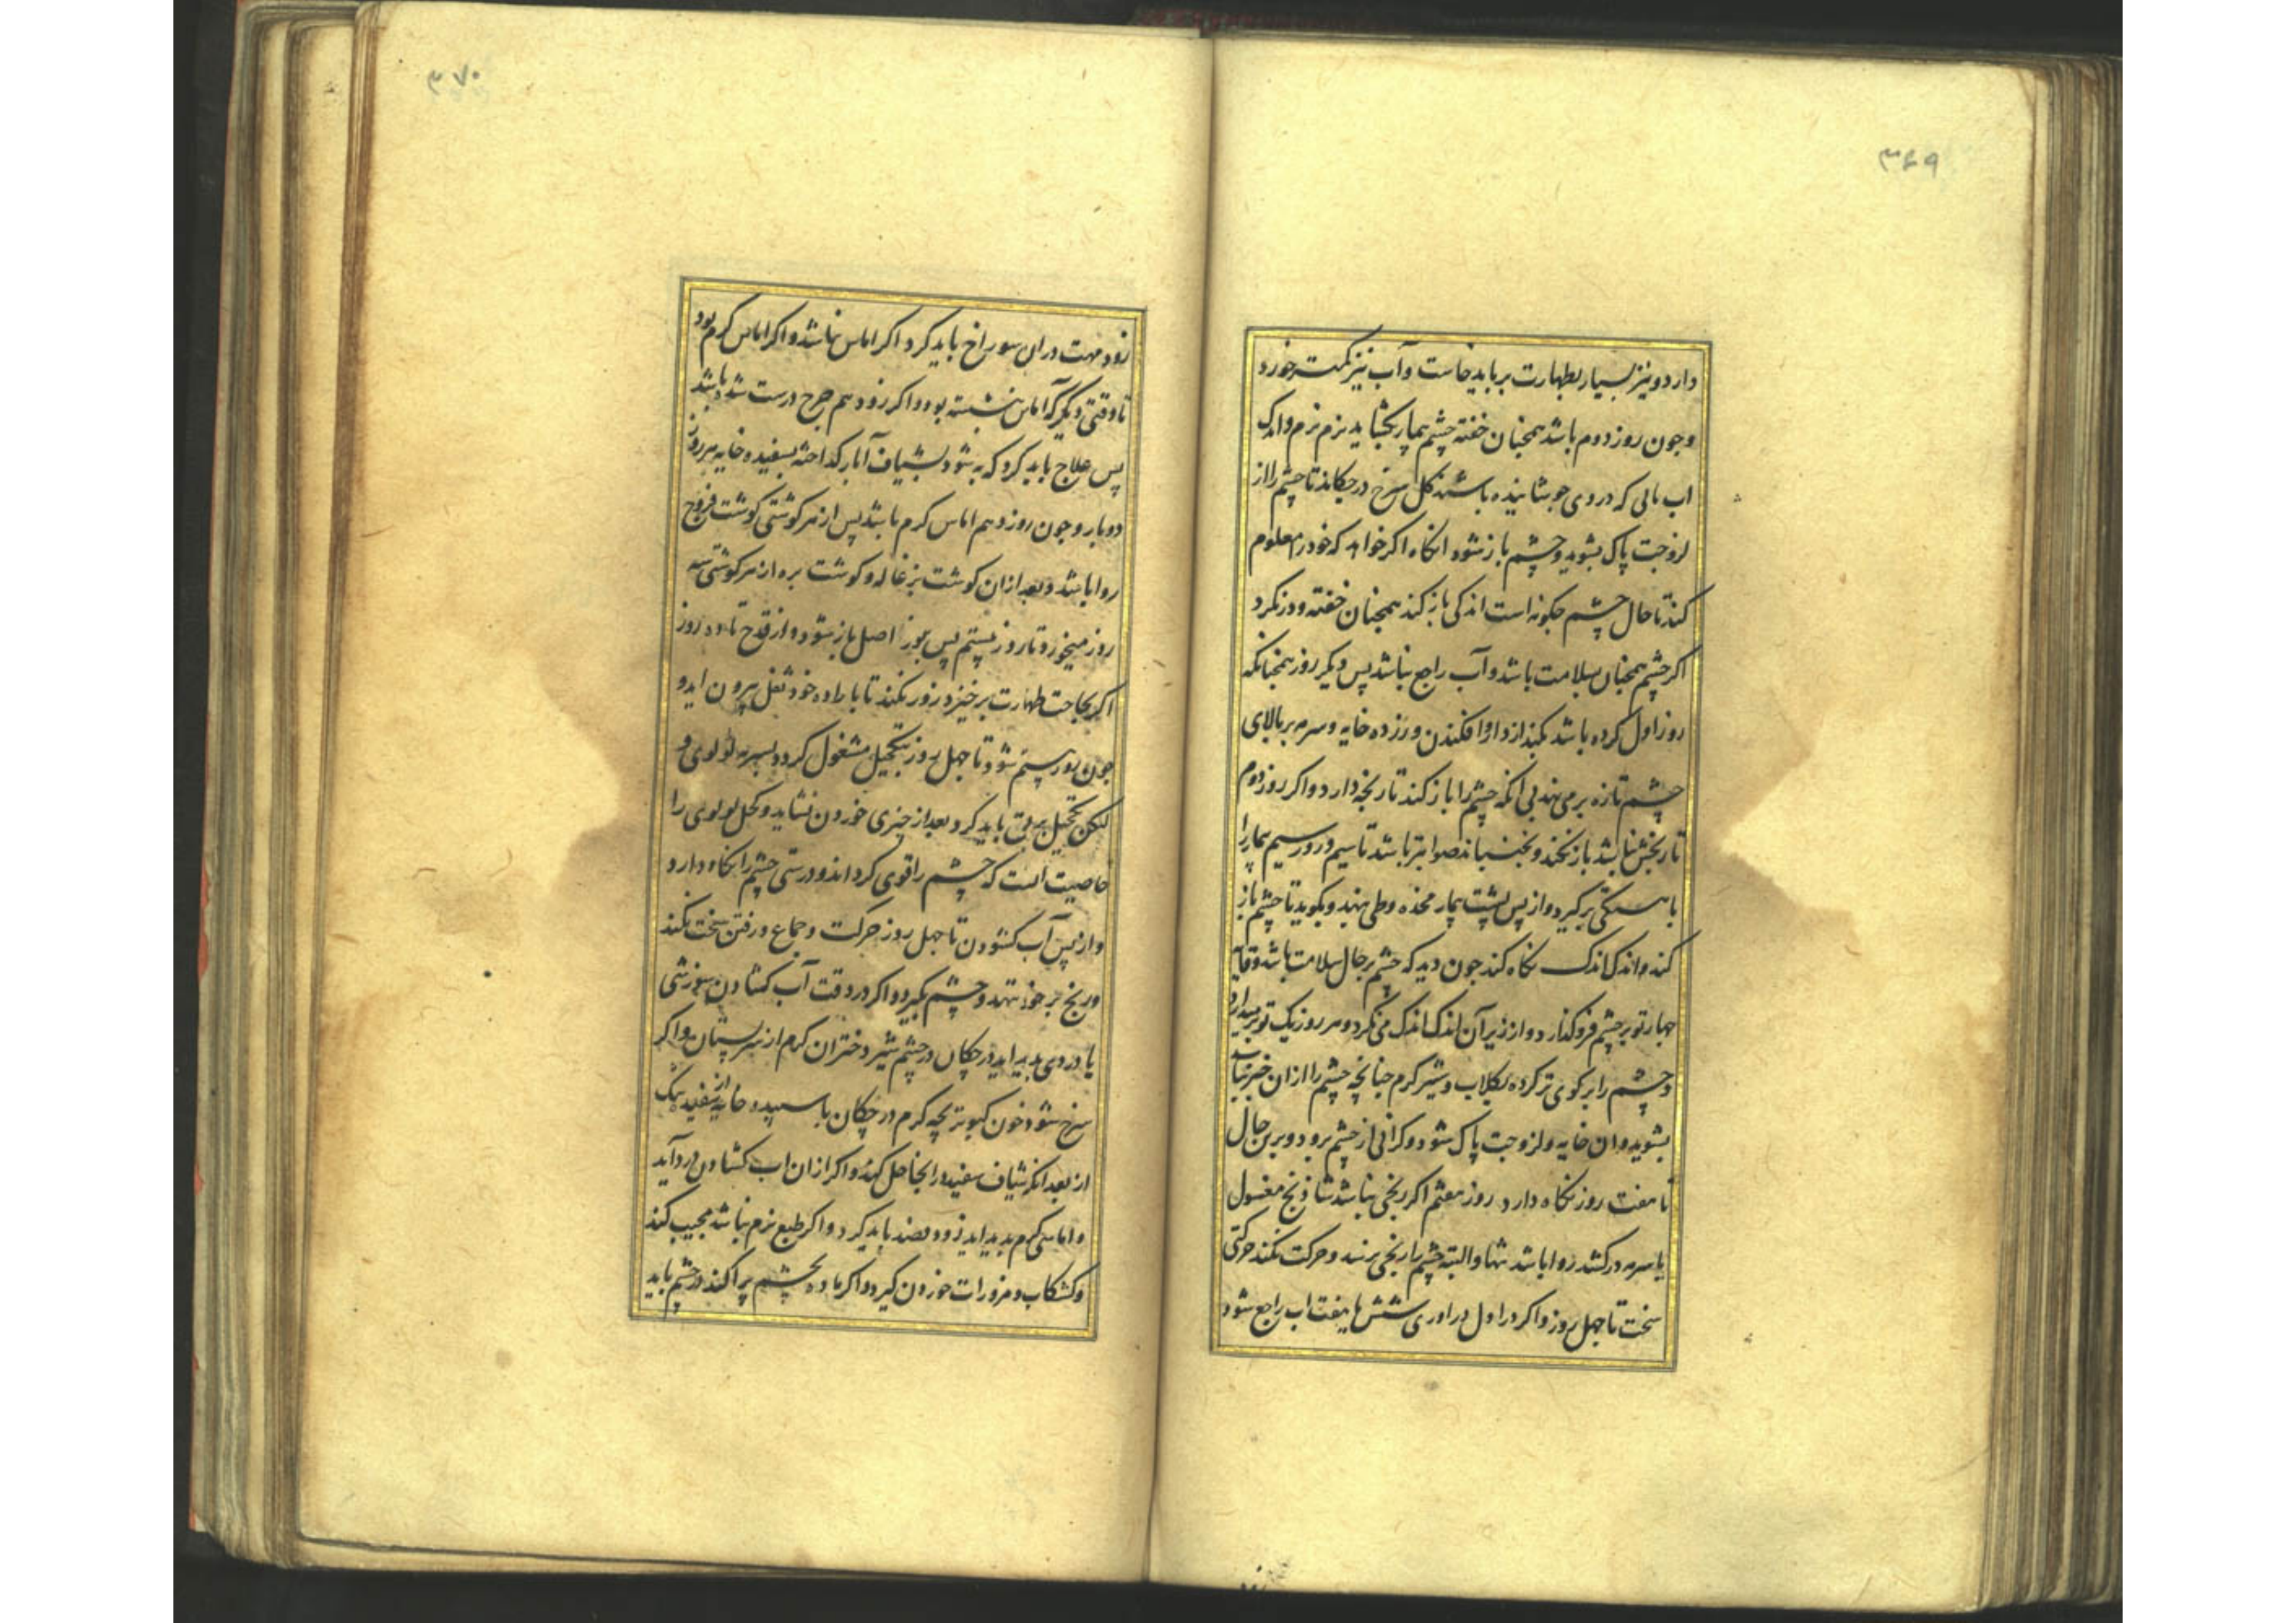 ۳۶۹
دارد و نیز بسیار بطهارت بر باید خاست و آب نیز کمتر خورد
و جون روز دوم باشد همجنان خفته چشم بیمار بکشاید نرم نرم و اندک
اب بابی که در وی جوشانیده باشند کل سرخ درجکاند تا چشم را از
لزوجت پاک بشوید و چشم باز شود انکاه اکر خواهد که خود را معلوم
کند تا حال چشم جکونه است اندکی باز کند همجنان خفته و در نکرد
اکر چشم همجنان بسلامت باشد و آب راجع نباشد پس دیکر روز همجنانکه
روز اول کرده باشد بکند از دارو افکندن و زرده خایه و سرمه بر بالای
چشم تازه برمی نهد بی انکه چشم را باز کند تا رنجه دارد و اکر روز دوم
تا رنجش نباشد باز نکند و نجنباند صوابتر باشد تا سیم و روز سیم بیمار را
باهستکی برکیرد و از پس پشت بیمار مخده وطی بنهد و بکوید تا چشم باز
کند و اندک اندک نکاه کند جون دید که چشم بر حال سلامت باشد وقایه
جهار تو بر چشم فروکذارد و از زیر آن اندک اندک می نکرد و هر روز یک تو بر میدارد
و چشم را بر کوی تر کرده بکلاب و شیر کرم جنانچه چشم را از ان خبر نباشد
بشوید و ان خایه و لزوجت پاک شود و کرانی از چشم برود و برین حال
تا هفت روز نکاه دارد روز هفتم اکر رنجی نباشد شاذنج مغسول
یا سرمه درکشد روا باشد تنها و البته چشم را رنجی نرسد و حرکت نکند حرکتی
سخت تا جهل روز و اکر در اول دراوری شش یا هفت اب راجع شود
۳۷۰
زود مهت در ان سوراخ باید کرد اکر اماس نباشد و اکر اماس کرم بود
تا وقتی دیکر که آماس بنشسته بود و اکر زود هم جرح درست شده باشد
پس علاج باید کرد که به شود بشیاف آبار کداخته بسفیده خایه هر روز
دوبار و جون روز دهم اماس کرم باشد پس از هر کوشتی کوشت فروج
روا باشد و بعد از ان کوشت بزغاله و کوشت بره از هر کوشتی سه
روز میخورد تا روز بیستم پس بوزن اصل باز شود و از قدح تا ده روز
اکر بحاجت طهارت برخیزد زور نکند تا باراده خود ثفل بیرون اید و
جون بوز بیستم شود تا جهل روز بتکحیل مشغول کردد بسرمه لولوی و
لیکن تکحیل برفق باید کرد بعد از چیزی خوردن نشاید و کحل لولوی را
خاصیت انست که چشم را قوی کرداند و درستی چشم را نکاه دارد
و از پس آب کشودن تا جهل روز حرکت و جماع و رفتن سخت نکند
و رنج بر خود ننهد و چشم نکیرد و اکر در وقت آب کشادن سوزشی
یا دردی پدید اید درچکان در چشم شیر دختران کرم از سر پستان و اکر
سرخ شود خون کبوتر بچه کرم درچکان با سپیده خایه از سفید تنک
از بعد انکه شیاف سفید در انجا حل کنند و اکر از ان اب کشادن درد آید
و اماسی کرم پدید اید زود فصد باید کرد و اکر طبع نرم نباشد مجیب کند
و کشکاب و مزورات خوردن کیرد و اکر ماده بچشم پراکند در چشم باید